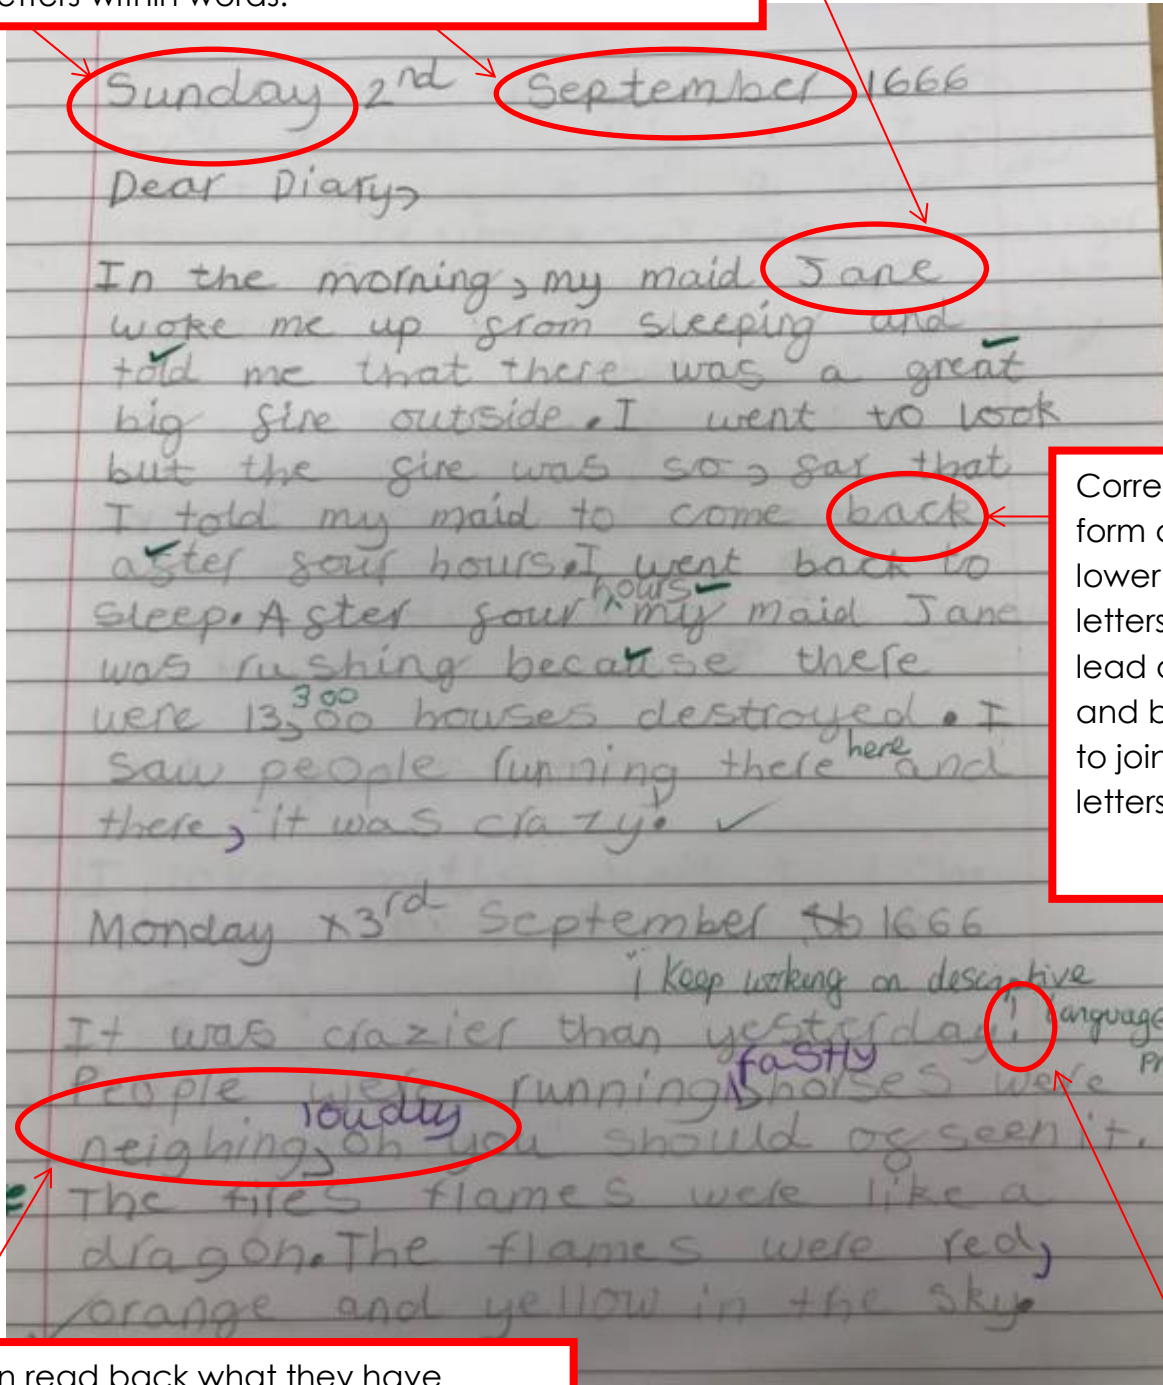 etters within words.
Sunday 2nd September 1666
Dear Diary,
In the morning, my maid Jane
woke me up from sleeping and
told me that there was a great
big fire outside. I went to look
but the fire was so, far that
I told my maid to come back
after four hours. I went back to
hours
sleep. After four ^ my maid Jane
was rushing because there
300
were 13,00 houses destroyed. I
here
saw people running there and
there, it was crazy! ✓
Monday x3rd September 1666
i Keep working on descriptive
language
It was crazier than yesterday!
fastly
People were running ^ horses were
loudly
neighing, oh you should of seen it.
The fires flames were like a
dragon. The flames were red,
orange and yellow in the sky.
Corre
form
lower
letters
lead
and b
to join
letters
n read back what they have